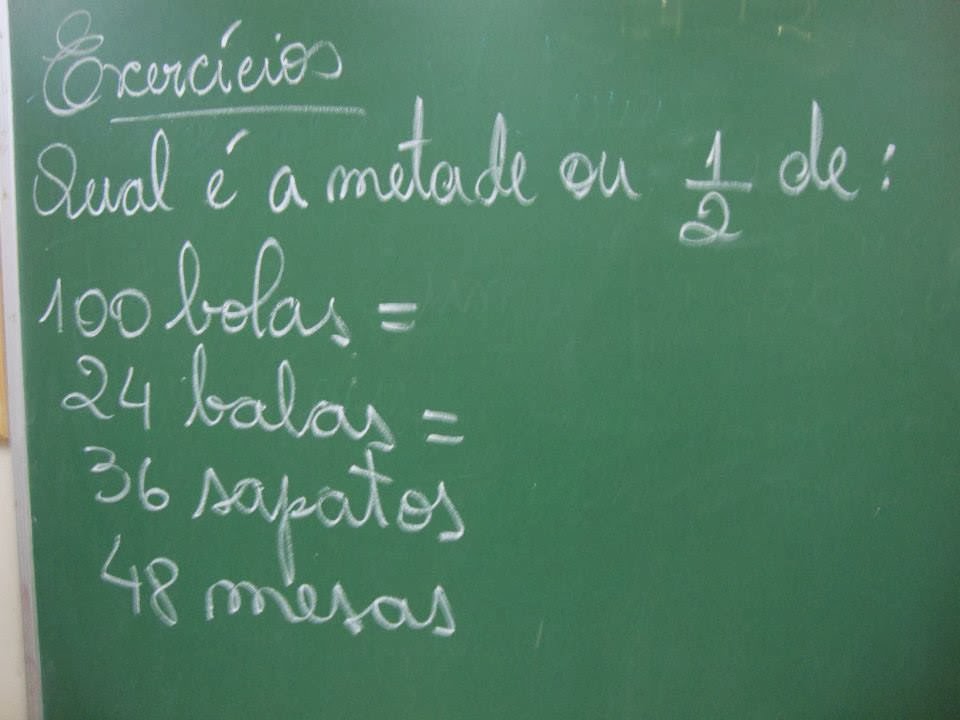 Exercícios
Qual é a metade ou 1/2 de:
100 bolas =
24 balas =
36 sapatos
48 mesas